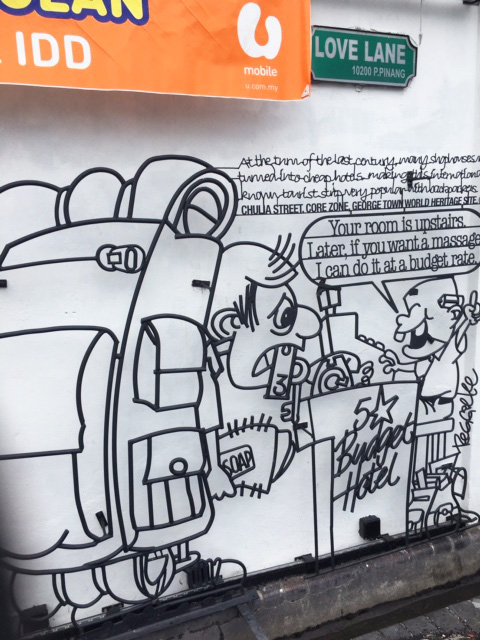 OLAN
IDD
u
mobile
u.com.my
LOVE LANE
10200 P.PINANG
At the turn of the last century, many shophouses
turned into cheap hotels making this international
known tourist strip very popular with backpackers.
CHULIA STREET, CORE ZONE, GEORGE TOWN WORLD HERITAGE SITE
Your room is upstairs.
Later, if you want a massage
I can do it at a budget rate.
3
5
SOAP
5
Budget
Hotel